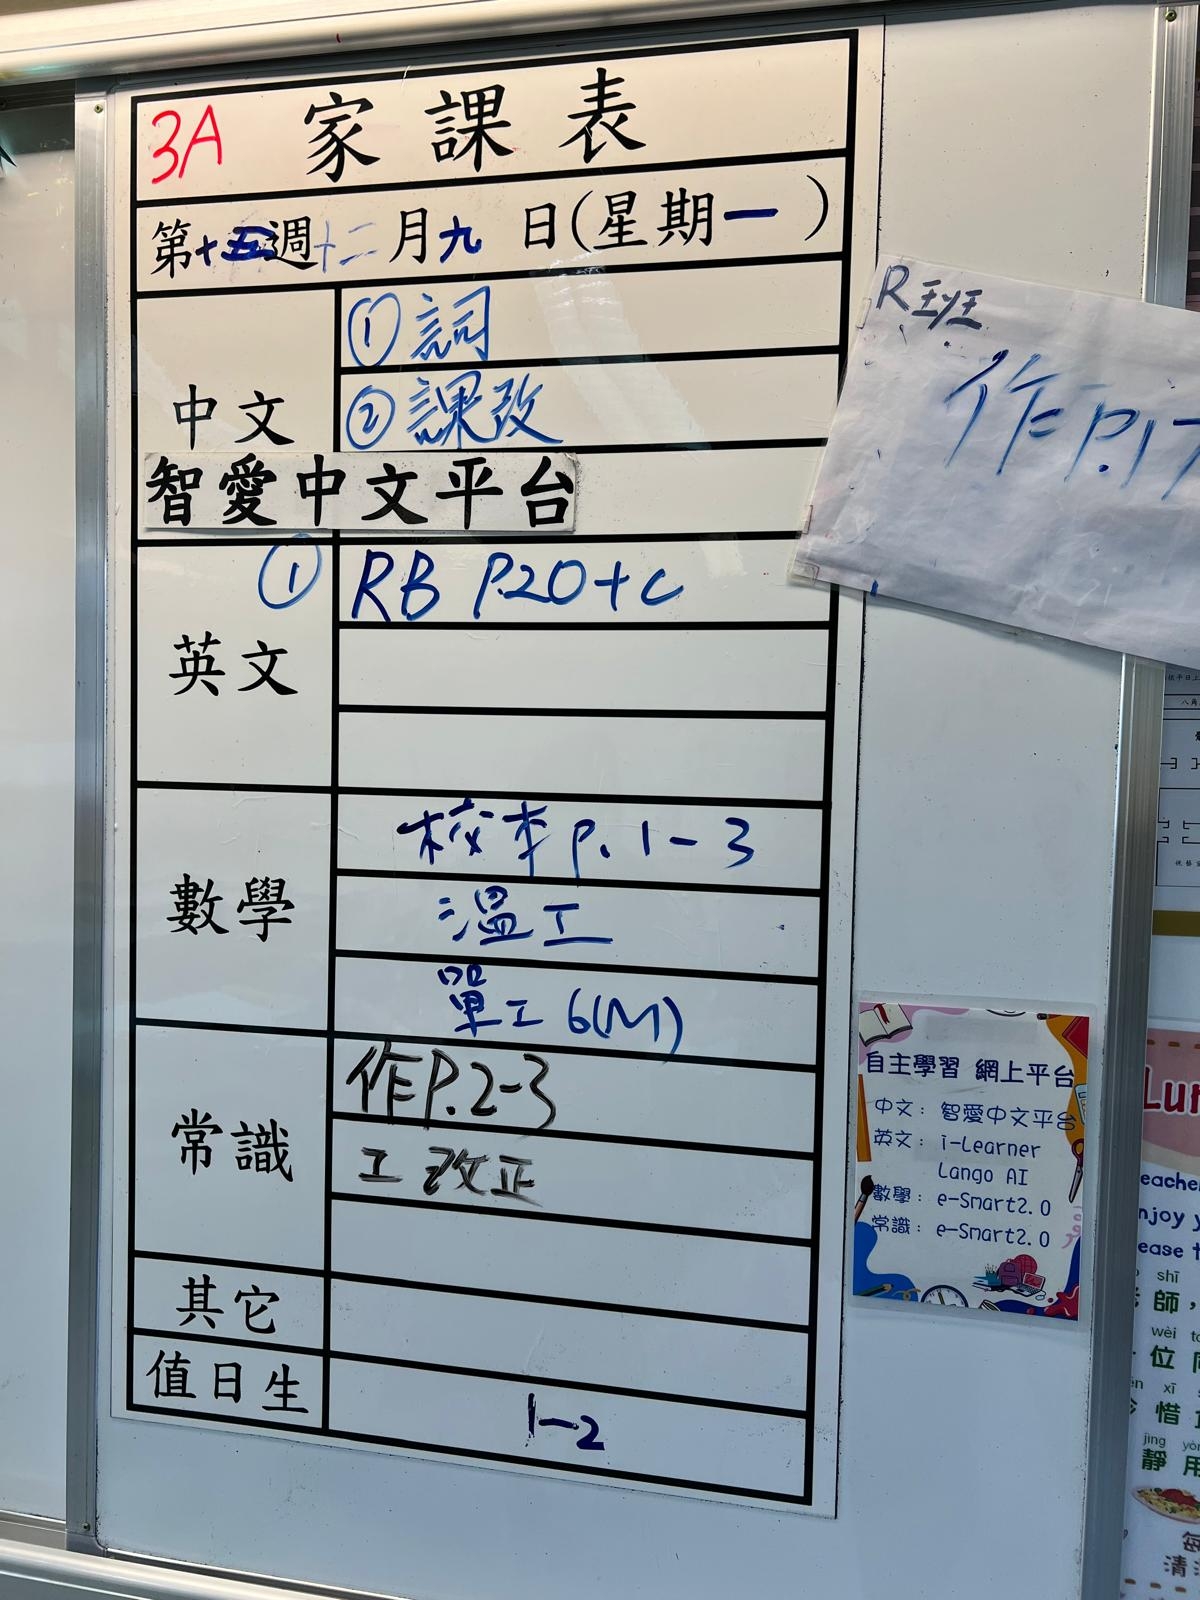 3A 家課表
第十五週十二月九日(星期一)
中文
①詞
②課改
智愛中文平台
英文
① RB P.20+c
數學
校本 p. 1-3
溫工
單工 6(M)
常識
作P.2-3
工 改正
其它
值日生
1-2
作 P.17
自主學習 網上平台
中文：智愛中文平台
英文：i-Learner
Lango AI
數學：e-Smart2.0
常識：e-Smart2.0
shī
師，
wèi
位
xī
惜
jìng
靜 用